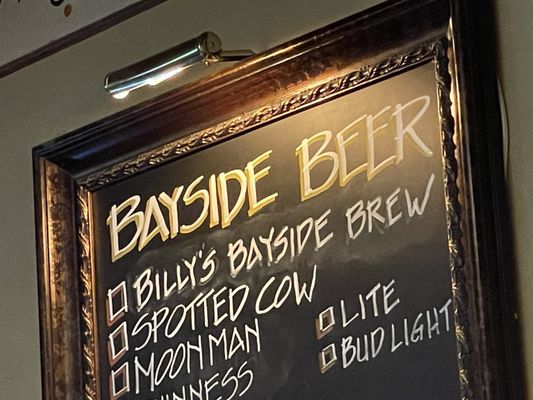 BAYSIDE BEER
BILLY'S BAYSIDE BREW
SPOTTED COW
MOON MAN
LITE
BUD LIGHT